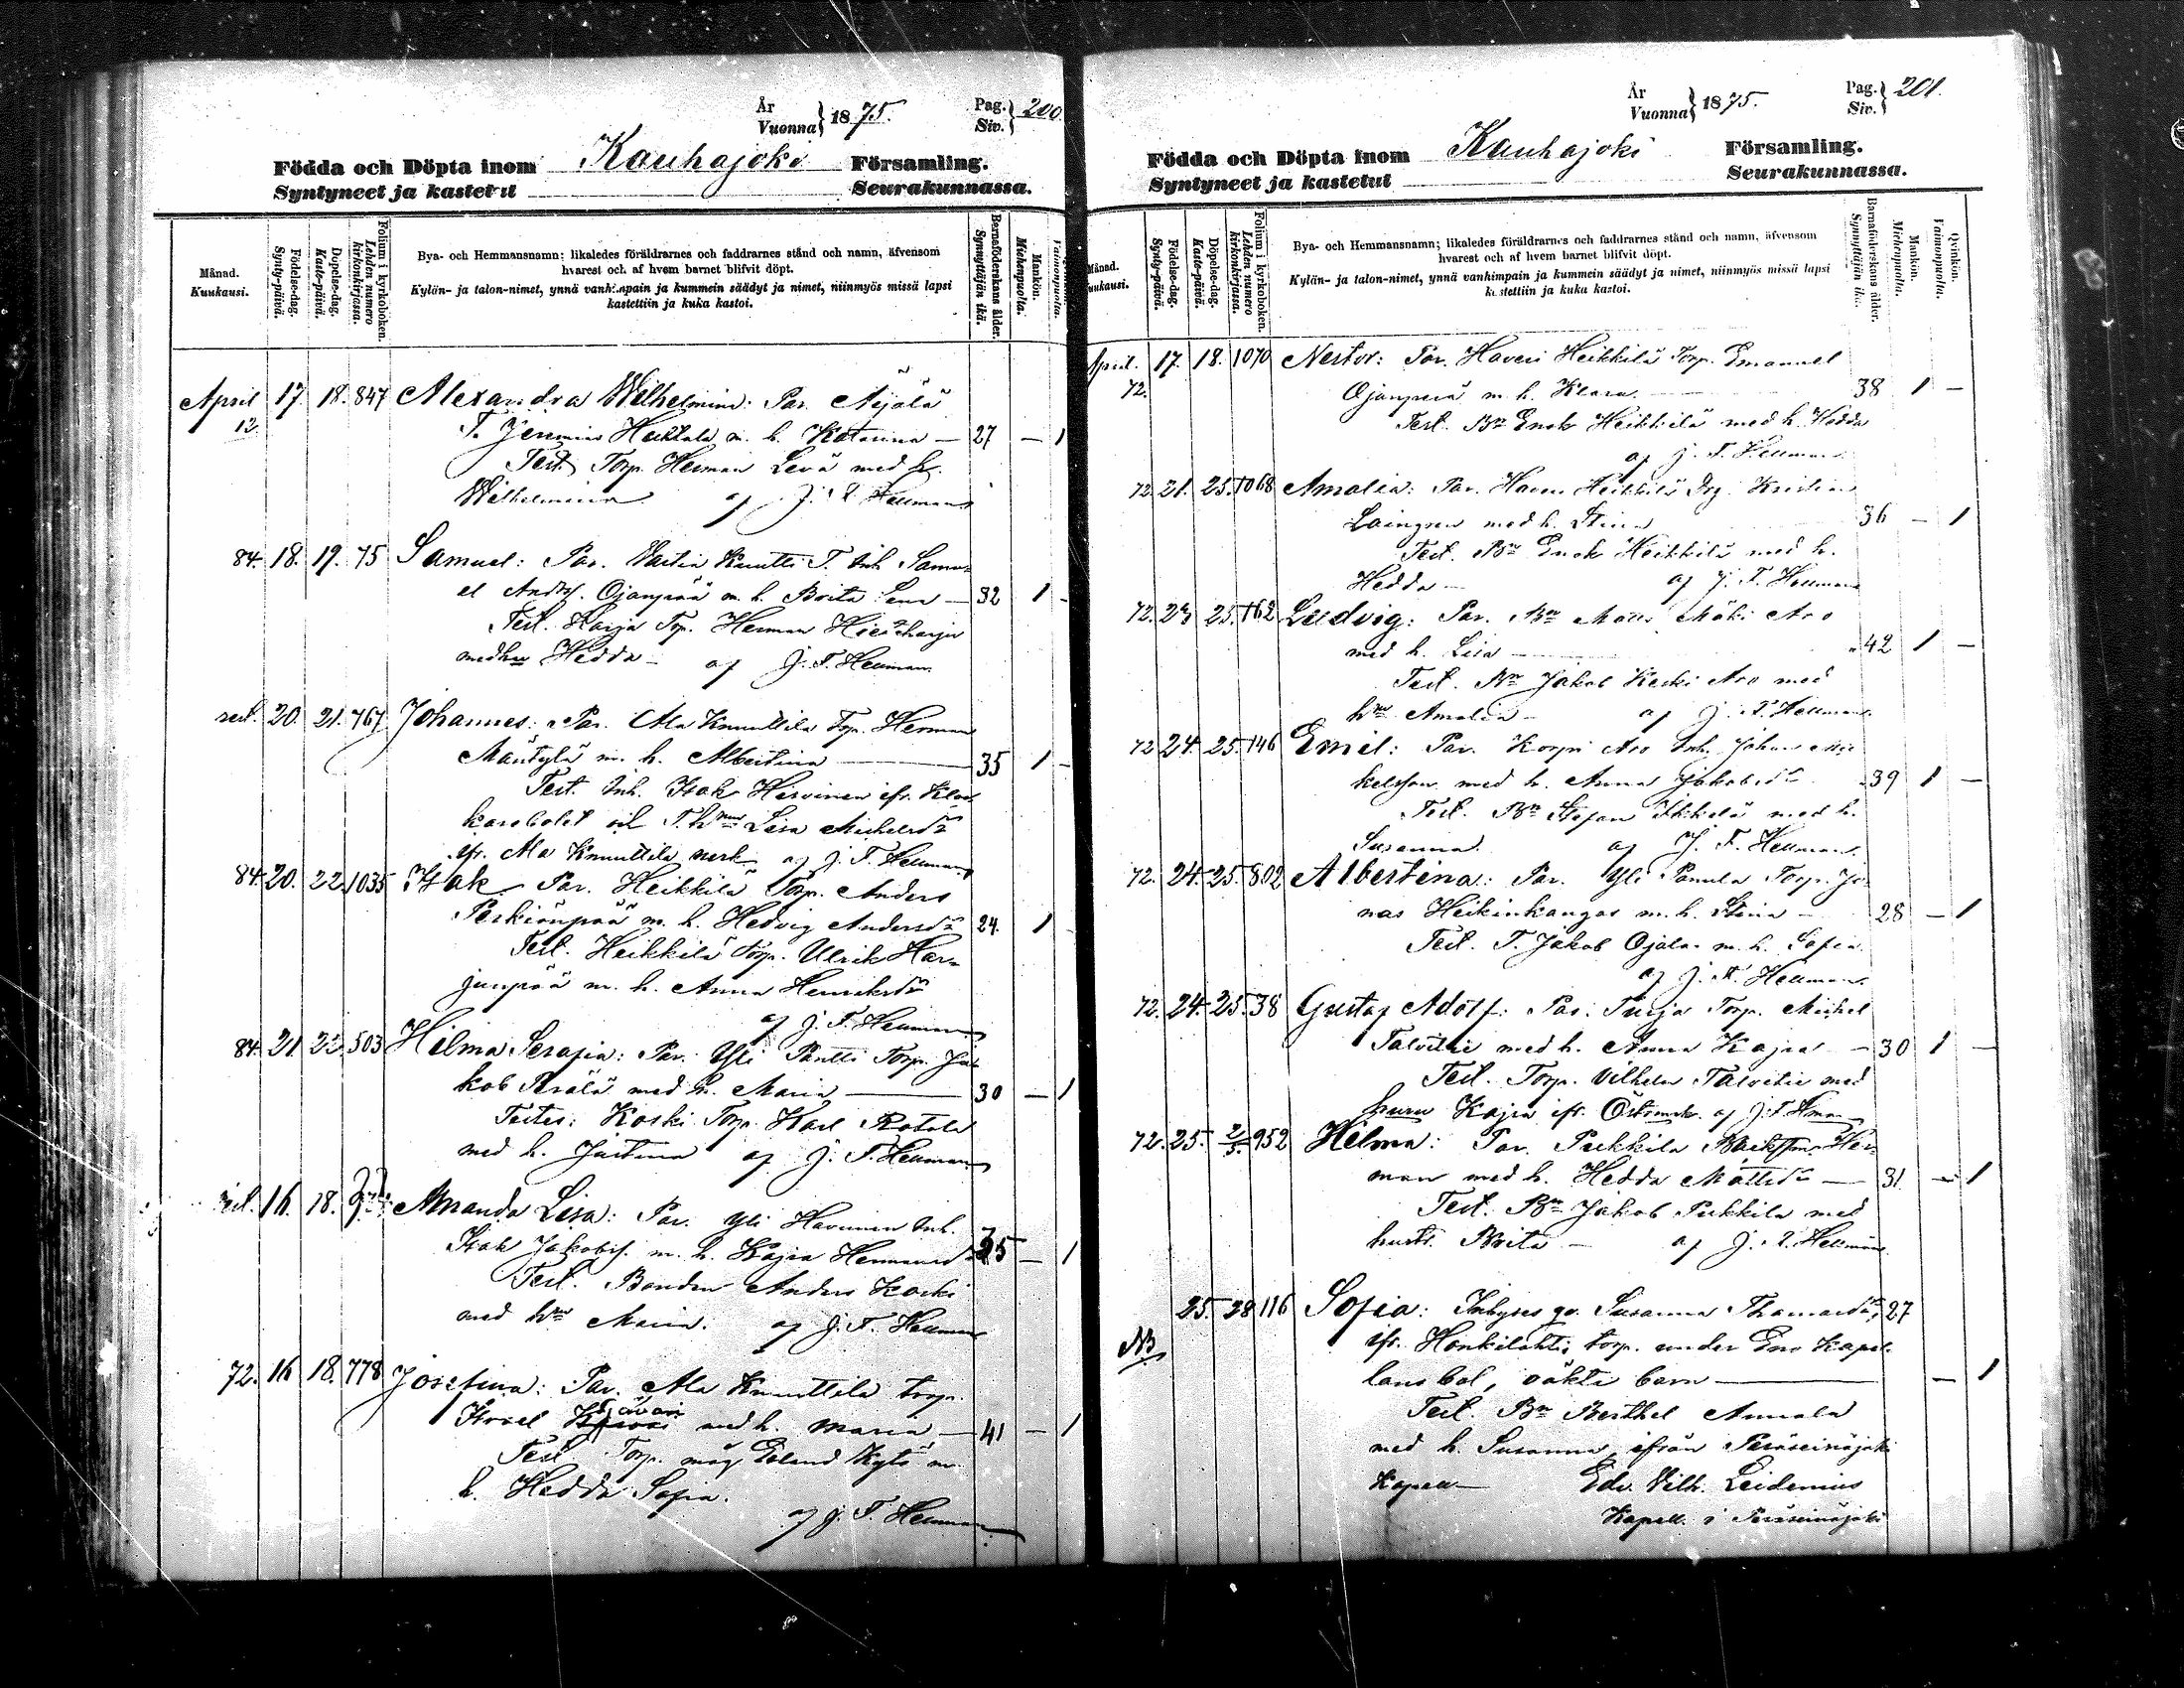 År
Vuonna } 1875.
Pag.
Siv. } 200.
Födda och Döpta inom Kauhajoki Församling.
Syntyneet ja kastetut Seurakunnassa.
Månad.
Kuukausi.
Födelse-dag.
Synty-päivä.
Döpelse-dag.
Kaste-päivä.
Folium i kyrkoboken.
Lehden numero kirkonkirjassa.
Bya- och Hemmansnamn; likaledes föräldrarnes och faddrarnes stånd och namn, äfvensom
hvarest och af hvem barnet blifvit döpt.
Kylän- ja talon-nimet, ynnä vanhimpain ja kummein säädyt ja nimet, niinmyös missä lapsi
kastettiin ja kuka kastoi.
Barnaföderskans ålder.
Synnyttäjän ikä.
Mankön.
Miehenpuolta.
Vaimonpuolta.
April 17. 18. 847 Alexandra Wilhelmina: Par. Äijälä
12. T. Jeremias Heikkilä m. h. Katarina — 27 — 1
Test. Torp. Herman Levä med h.
Wilhelmina af J. F. Hellman
84. 18. 19. 75 Samuel: Par. Knutti T. Inh. Samu-
el Andersf. Ojanpää m. h. Brita Lena — 32 1 -
Test. Harja Torp. Herman Hietaharju
med hu Hedda — af J. F. Hellman
20. 21. 767 Johannes: Par. Ala Knuuttila Torp. Herman
Mäntylä m. h. Albertina — 35 1 -
Test. Inh. Isak Hirvinen ifr.
Lisa Michelsdr
ifr. Ala Knuuttila af J. F. Hellman
84. 20. 22. 1035 Isak Par. Heikkilä Torp. Anders
Perkiönpää m. h. Hedvig Andersdr 24. 1
Test. Heikkilä Torp. Ulrik Har-
junpää m. h. Anna Henriksdr
af J. F. Hellman
84. 21. 22. 503 Hilma Serafia: Par. Yli Pantti Torp. Ja-
kob Perälä med h. Maria — 30 — 1
Testes: Koski Torp. Karl Rotola
med h. Justina af J. F. Hellman
16. 18. Amanda Lisa: Par. Yli Havunen Inh.
Isak Jakobsf. m. h. Kajsa Hermansd 35 — 1
Test. Bonden Anders Koski
med hru Maria. af J. F. Hellman
72. 16 18. 778 Josefina: Par. Ala Knuuttila torp.
Israel med h. Maria — 41 — 1
Test. Torp. måg Erland Kytö m.
h. Hedda Sofia.
af J. F. Hellman
År
Vuonna } 1875.
Pag.
Siv. } 201.
Födda och Döpta inom Kauhajoki Församling.
Syntyneet ja kastetut Seurakunnassa.
Månad.
Kuukausi.
Födelse-dag.
Synty-päivä.
Döpelse-dag.
Kaste-päivä.
Folium i kyrkoboken.
Lehden numero kirkonkirjassa.
Bya- och Hemmansnamn; likaledes föräldrarnes och faddrarnes stånd och namn, äfvensom
hvarest och af hvem barnet blifvit döpt.
Kylän- ja talon-nimet, ynnä vanhimpain ja kummein säädyt ja nimet, niinmyös missä lapsi
kastettiin ja kuka kastoi.
Barnaföderskans ålder.
Synnyttäjän ikä.
Mankön.
Miehenpuolta.
Qvinkön.
Vaimonpuolta.
April. 17. 18. 1070 Nestor: Par. Haveri Heikkilä Torp. Emanuel
72. Ojanperä m. h. Klara. 38 1 —
Test. Bn Enok Heikkilä med h. Hedda
af J. F. Hellman
72. 21. 25. 1068 Amalia: Par. Haveri Heikkilä Kristian
Laingren med h. Stina 36 — 1
Test. Bn Enok Heikkilä med h.
Hedda — af J. F. Hellman
72. 23 25. 162 Ludvig: Par. Bn Matts Mäki Aro
med h. Lisa — 42 1 —
Test. Bn Jakob Keski Aro med
hru Amalia — af J. F. Hellman
72 24. 25. 146 Emil: Par. Korpi Aro Inh. Johan Mi-
kelsson med h. Anna Jakobsdr 39 1 —
Test. Bn Stefan Ikkelä med h.
Susanna. af J. F. Hellman.
72. 24. 25. 802 Albertina: Par. Yli Panula Torp. Jo-
nas Heikinkangas m. h. Stina — 28 — 1
Test. T. Jakob Ojala m. h. Sofia.
af J. F. Hellman.
72. 24. 25. 38 Gustaf Adolf: Par. Turja Torp. Michel
Talvitie med h. Anna Kajsa — 30 1 —
Test. Torp. Vilhelm Talvitie med
hru Kajsa ifr. Östermk. af J. F. Hman
72. 25. 2/5. 952 Hilma: Par. Pukkila Backstm. Her-
man med h. Hedda Mattsdr — 31. — 1
Test. Bn Jakob Pukkila med
hustr. Brita — af J. F. Hellman.
25. 28 116 Sofia: Inhyses qv. Susanna Thomasdr, 27
NB ifr. Honkilahti torp. under Eno Kapel-
lans bol, oäkta barn — — 1
Test. Bn Berthel Annala
med h. Susanna ifrån Peräseinäjoki
Kapell — Edv. Vilh. Leidenius
Kapell. i Peräseinäjoki